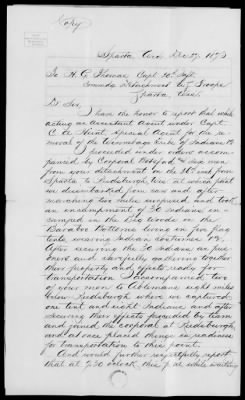 Copy
Sparta Wis Dec 19, 1873
To H. C. Thomas Capt 20" Infty
Comndg Detachment U.S. Troops
Sparta, Wis.
Dr Sir,
I have the honor to report that while
acting as Assistant Agent under Capt.
C A Hunt Special Agent for the re-
moval of the Winnebago Tribe of Indians
I proceeded under orders accom-
panied by Corporal and six men
from your detachment on the 16" inst from
Sparta to Reedsburgh, Wis at which point
we disembarked from cars and after
marching two miles surprised and took
an encampment of 30 Indians en-
camped in the Big Woods on the
Baraboo Bottoms living in five flag
tents, wearing Indian costumes
After securing the 30 Indians as pris-
oners and carefully gathering together
their property and effects ready for
transportation I accompanied two
of your men to Ablemans eight miles
below Reedsburgh where we captured
one tent and eight Indians and after
securing their effects proceeded by team
and joined the corporal at Reedsburgh,
and at once placed things in readiness
for transportation to this point.
And would further respectfully report
that at 7.30 o'clock, this P.M. while waiting